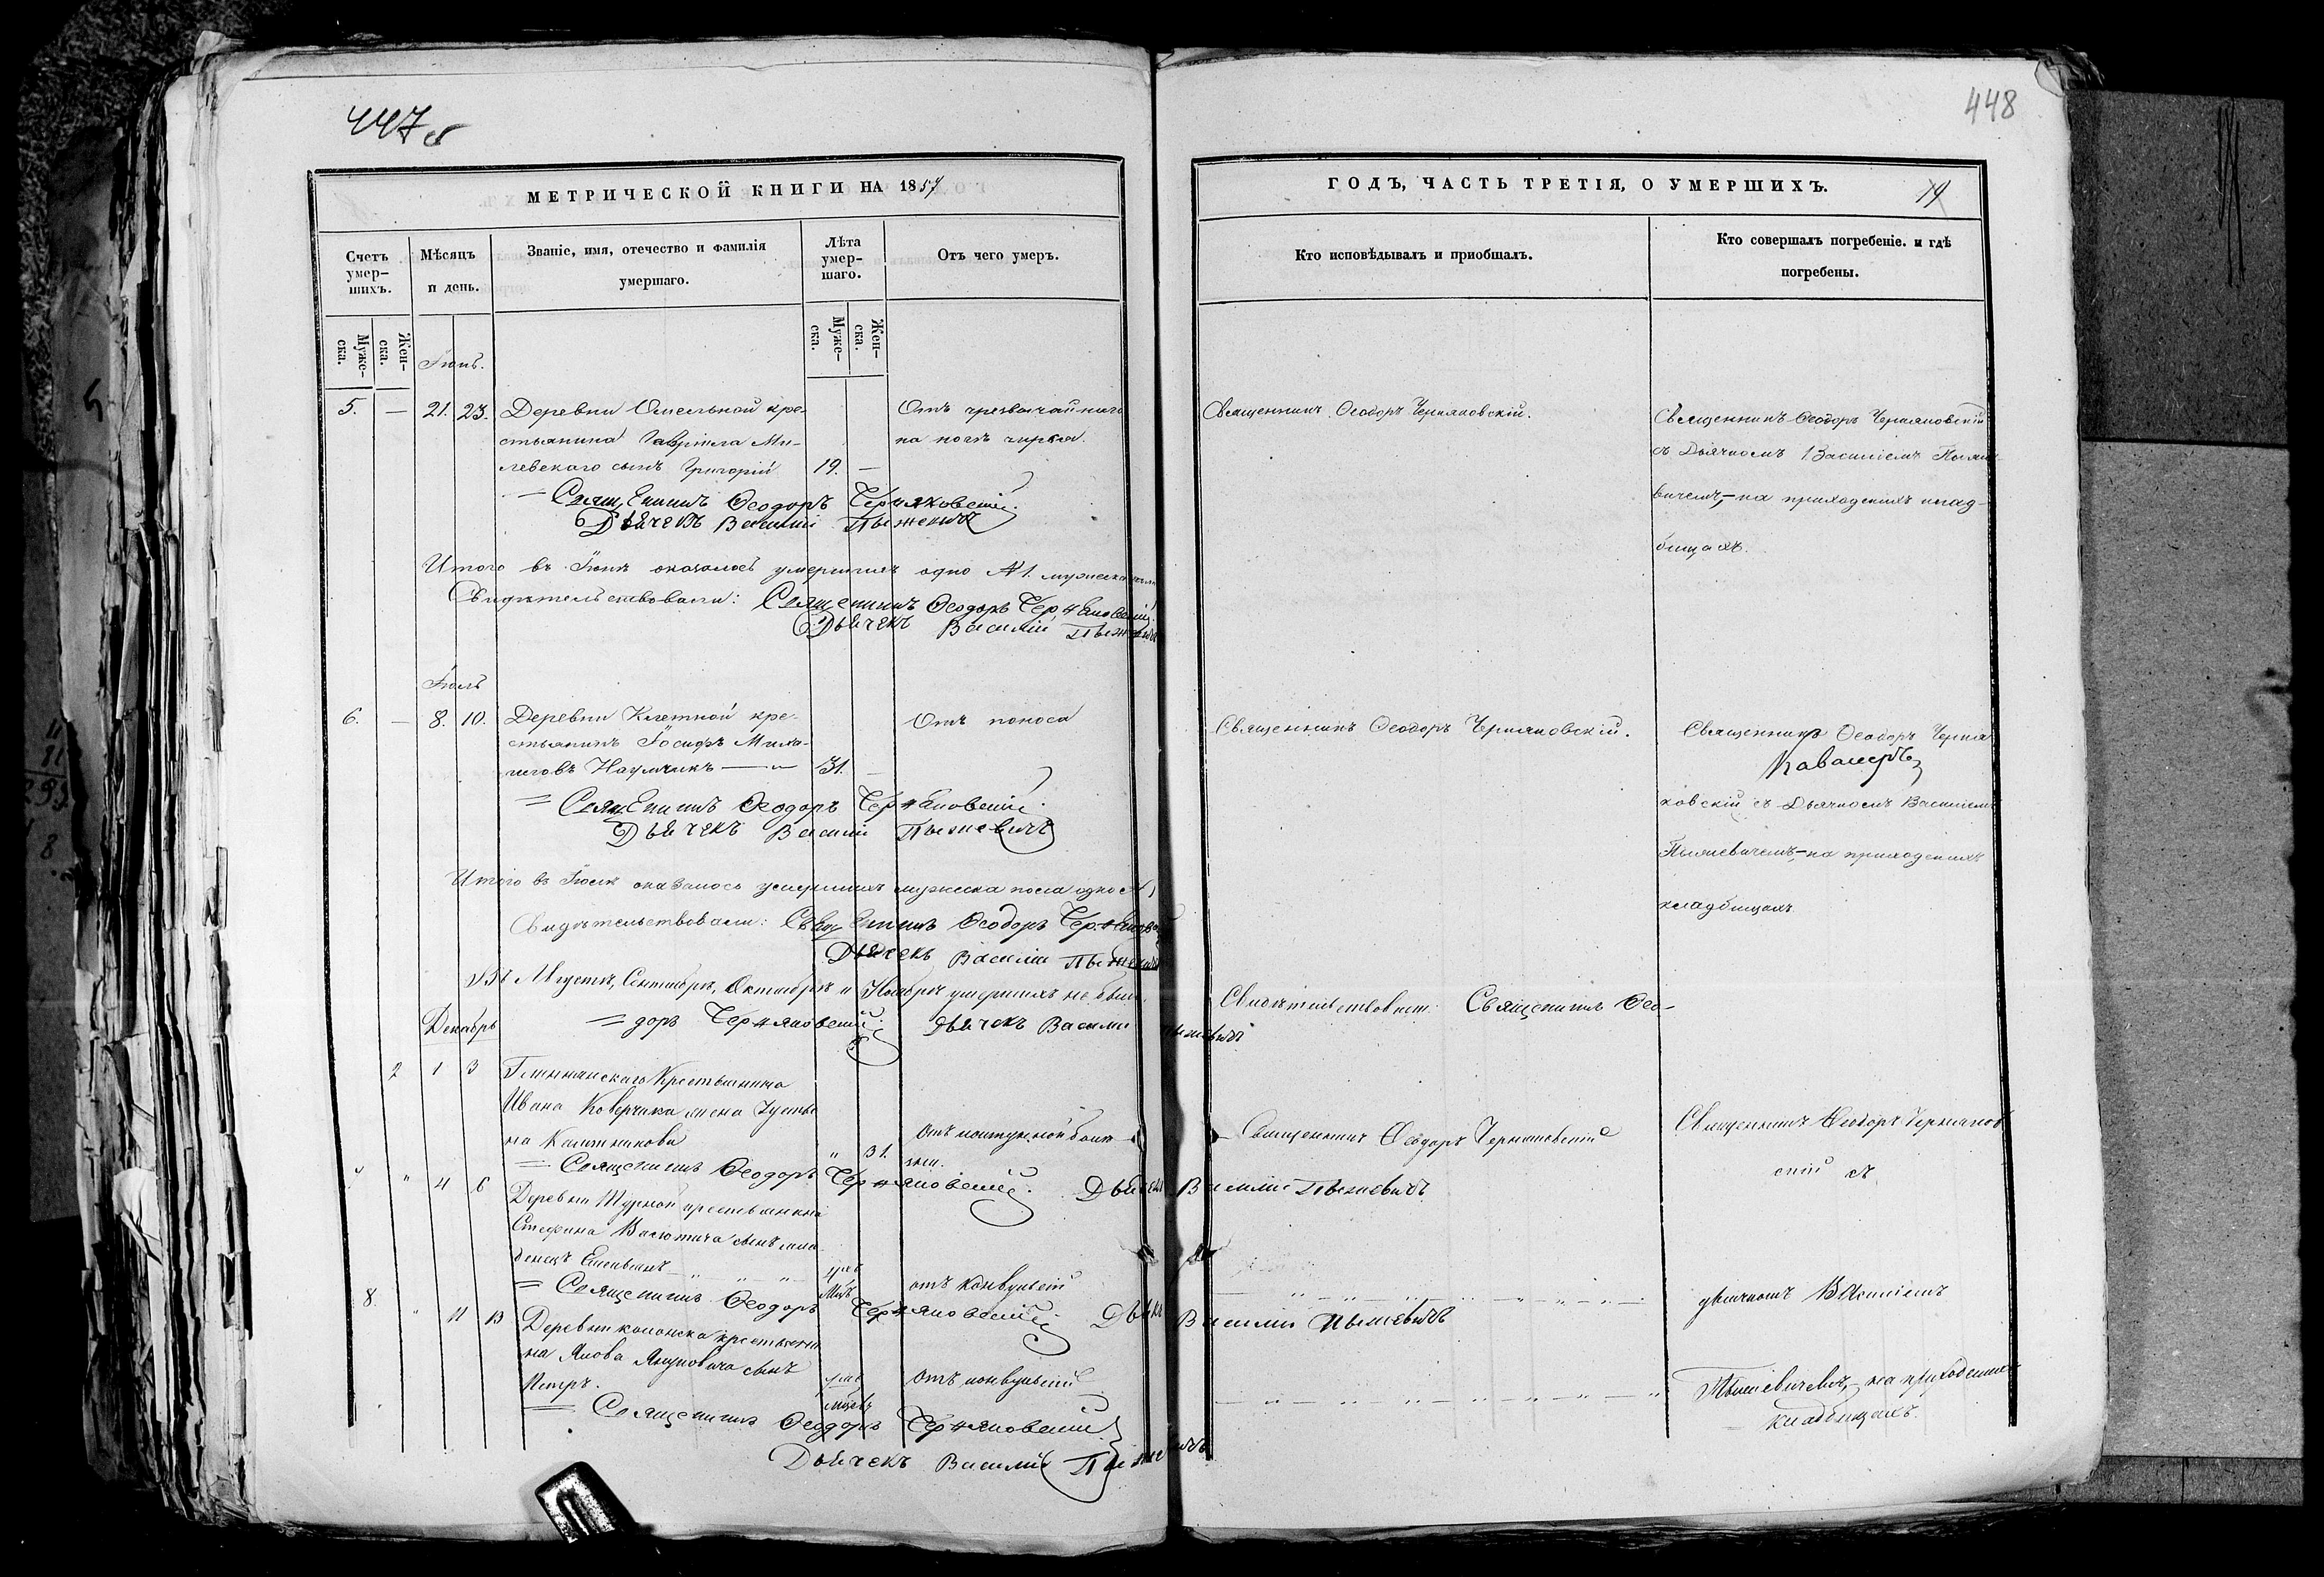 447 об
МЕТРИЧЕСКОЙ КНИГИ НА 1857
Счетъ умер-шихъ.
Мѣсяцъ и день.
Званіе, имя, отечество и фамилія умершаго.
Лѣта умер-шаго.
Отъ чего умеръ.
Муже-ска.
Жен-ска.
Муже-ска.
Жен-ска.
Іюнь.
5. — 21. 23. Деревни Омельной кре- Отъ чрезвычайнаго
стьянина Гавріила Ми- на ногѣ чирья.
левскаго сынъ Григорій 19. —
— Священникъ Ѳеодоръ Черняковскій.
Дьячекъ Василій Пыжевичъ
Итого въ Іюнѣ оказалось умершихъ одно №1. мужеска
Свидѣтельствовали: Священникъ Ѳеодоръ Черняковскій.
Дьячекъ Василій Пыжевичъ
Іюль
6. — 8. 10. Деревни Клетной кре- Отъ поноса
стьянинъ Іосифъ Миха-
иловъ Наумчикъ — 31. —
= Священникъ Ѳеодоръ Черняковскій.
Дьячекъ Василій Пыжевичъ
Итого въ Іюлѣ оказалось умершихъ мужеска пола одно
Свидѣтельствовали: Священникъ Ѳеодоръ
Дьячекъ Василій Пыжевичъ
Въ Августѣ, Сентябрѣ, Октябрѣ и Ноябрѣ умершихъ не было.
Декабрь = доръ Черняковскій Дьячекъ Василій Пыжевичъ
2 1 3 Крестьянина
Ивана Коверчика жена Густы-
на 31. Отъ натужной болѣ-
зни.
= Священникъ Ѳеодоръ Черняковскій. Дьячекъ Василій Пыжевичъ
" 4 6 Деревни крестьянина
Стефана сынъ мла-
денецъ
Отъ конвульсій
= Священникъ Ѳеодоръ Черняковскій Дьячекъ Василій Пыжевичъ
8. " 11 13 Деревни крестьяни-
на Якова сынъ
Петръ. Отъ конвульсій
= Священникъ Ѳеодоръ Черняковскій
Дьячекъ Василій Пыжевичъ
448
ГОДЪ, ЧАСТЬ ТРЕТІЯ, О УМЕРШИХЪ.
19
Кто исповѣдывалъ и приобщалъ.
Кто совершалъ погребеніе. и гдѣ погребены.
Священникъ Ѳеодоръ Черняковскій.
Священникъ Ѳеодоръ Черняковскій
съ Дьячкомъ Василіемъ Пыже-
вичемъ, — на приходскихъ клад-
бищахъ.
Священникъ Ѳеодоръ Черняковскій.
Священникъ Ѳеодоръ Черня-
ковскій съ Дьячкомъ Василіемъ
Пыжевичемъ, — на приходскихъ
кладбищахъ.
Свидѣтельствовали: Священникъ Ѳео-
Священникъ Ѳеодоръ Черняковскій
Священникъ Ѳеодоръ Черняков-
скій съ
дьячкомъ Василіемъ
Пыжевичемъ, — на приходскихъ
кладбищахъ.